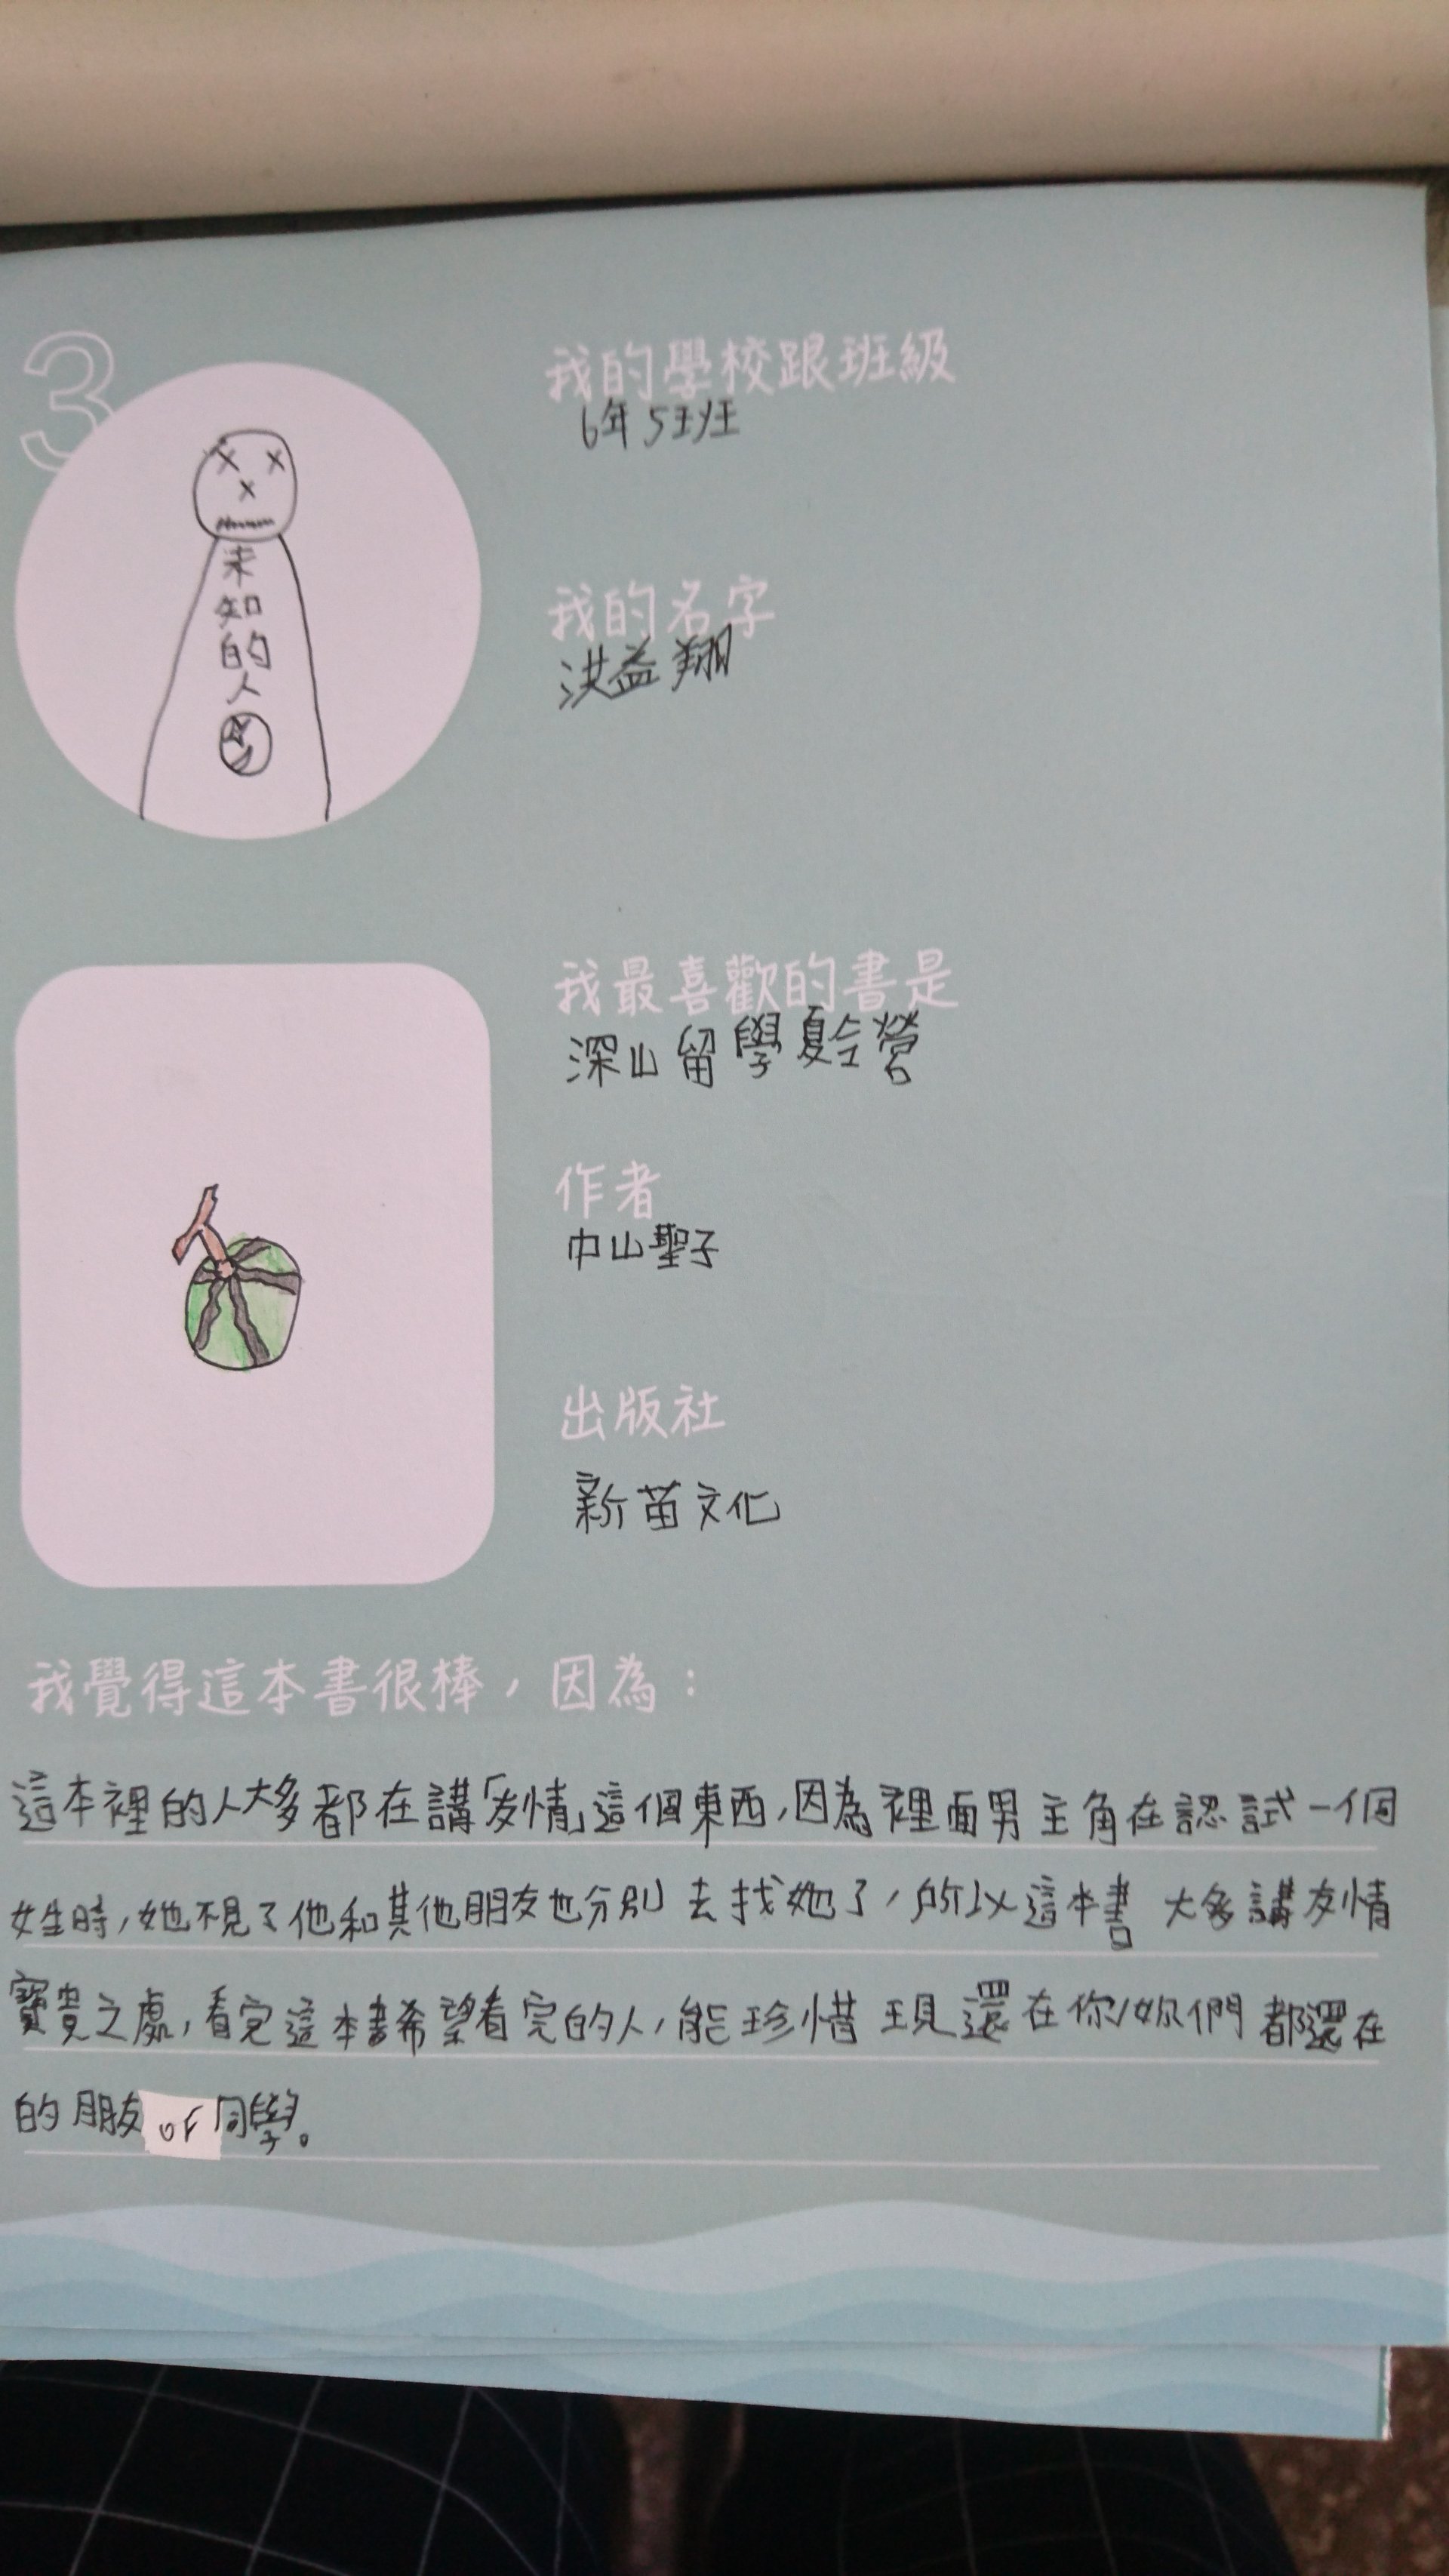 3
我的學校跟班級
6年5班
未知的人
我的名字
洪益翔
我最喜歡的書是
深山留學夏令營
作者
中山聖子
出版社
新苗文化
我覺得這本書很棒，因為：
這本裡的人大多都在講「友情」這個東西，因為裡面男主角在認試一個
女生時，她不見了他和其他朋友也分別去找她了，所以這本書大多講友情
寶貴之處，看完這本書希望看完的人，能珍惜現還在你/妳們都還在
的朋友or同學。